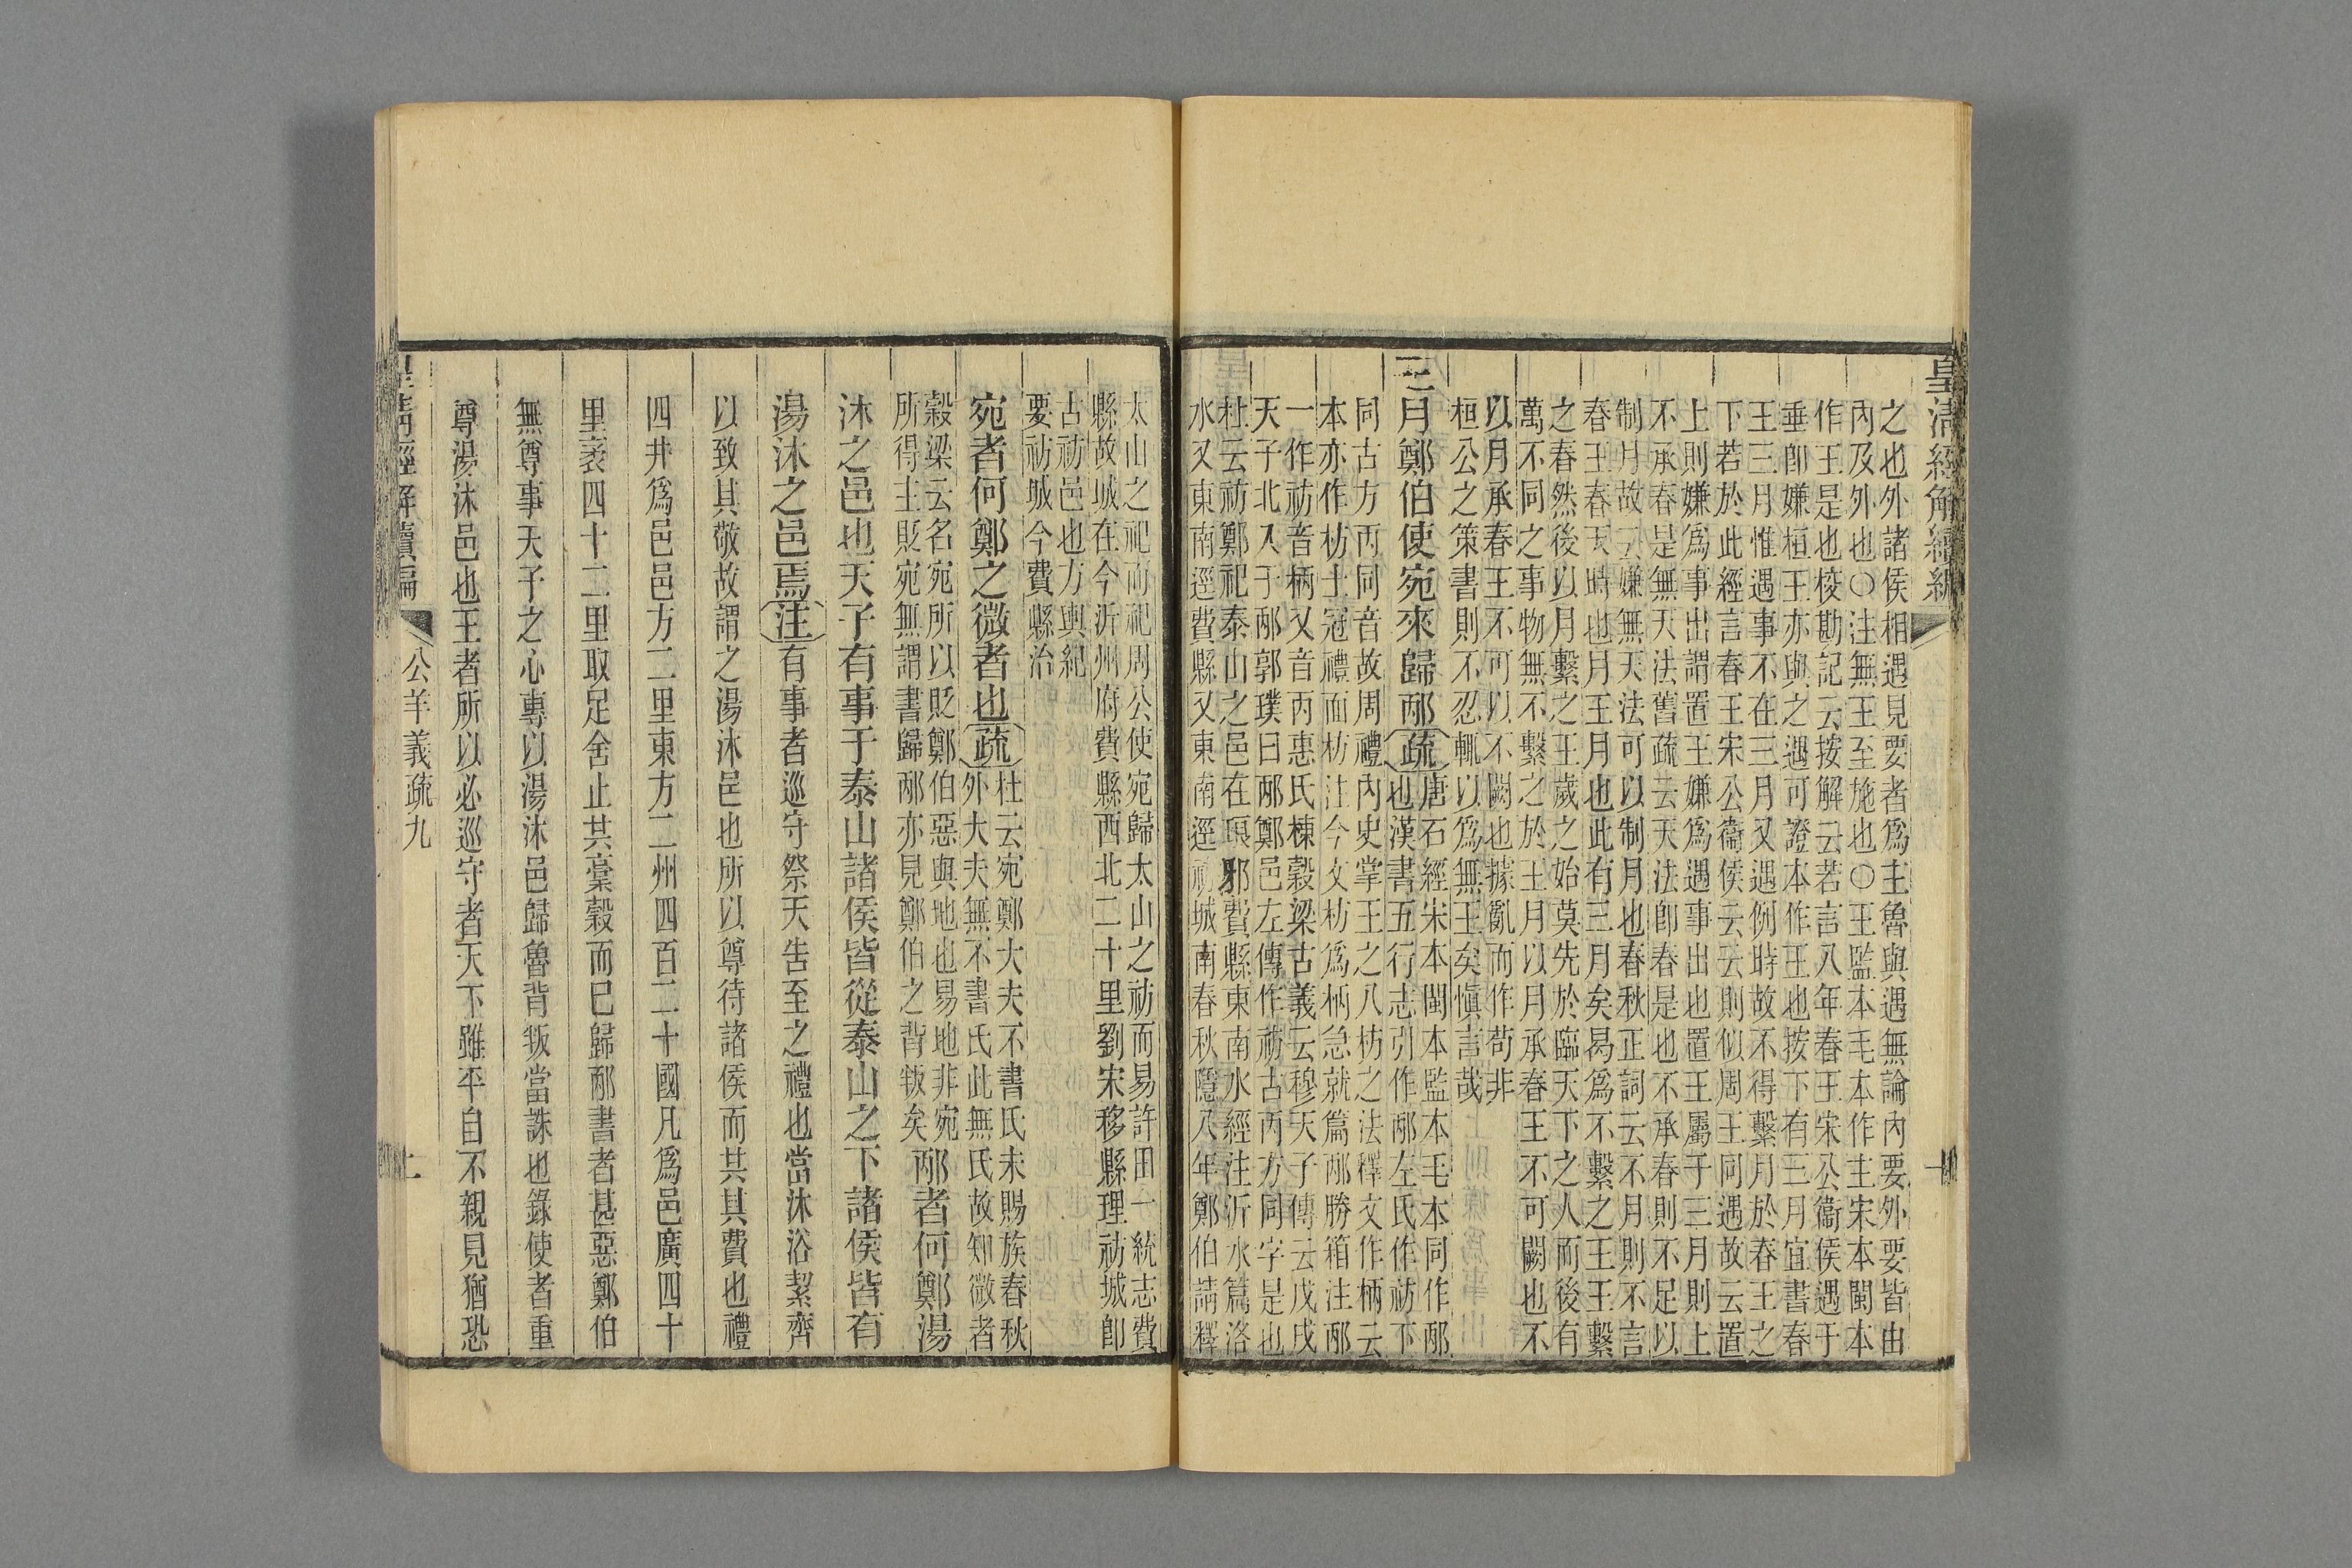 皇清經解續編
之也外諸侯相遇見要者爲主魯與遇無論內要外要皆由
內及外也○注無王至施也○王監本毛本作主宋本閩本
作王是也校勘記云按解云若言八年春王宋公衞侯遇于
垂卽嫌桓王亦與之遇可證本作王也按下有三月宜書春
王三月惟遇事不在三月又遇例時故不得繫月於春王之
下若於此經言春王宋公衞侯云云則似周王同遇故云置
上則嫌爲事出謂置王嫌爲遇事出也置王屬于三月則上
不承春是無天法舊疏云天法卽春是也不承春則不足以
制月故云嫌無天法可以制月也春秋正詞云不月則不言
春王春天時也月王月也此有三月矣曷爲不繫之王王繫
之春然後以月繫之王歲之始莫先於臨天下之人而後有
萬不同之事物無不繫之於王月以月承春王不可闕也不
以月承春王不可以不闕也據亂而作苟非
桓公之策書則不忍輒以爲無王矣愼言哉
三月鄭伯使宛來歸邴疏唐石經宋本閩本監本毛本同作邴
也漢書五行志引作邴左氏作祊下
同古方丙同音故周禮內史掌王之八枋之法釋文作柄云
本亦作枋士冠禮面枋注今文枋爲柄急就篇邴勝箱注邴
一作祊音柄又音丙惠氏棟穀梁古義云穆天子傳云戊戌
天子北入于邴郭璞曰邴鄭邑左傳作祊古丙方同字是也
杜云祊鄭祀泰山之邑在琅邪費縣東南水經注沂水篇洛
水又東南逕費縣又東南逕祊城南春秋隱八年鄭伯請釋
太山之祀而祀周公使宛歸太山之祊而易許田一統志費
縣故城在今沂州府費縣西北二十里劉宋移縣理祊城卽
古祊邑也方輿紀
要祊城今費縣治
宛者何鄭之微者也疏杜云宛鄭大夫不書氏未賜族春秋
外大夫無不書氏此無氏故知微者
穀梁云名宛所以貶鄭伯惡與地也易地非宛
所得主貶宛無謂書歸邴亦見鄭伯之背叛矣邴者何鄭湯
沐之邑也天子有事于泰山諸侯皆從泰山之下諸侯皆有
湯沐之邑焉注有事者巡守祭天告至之禮也當沐浴絜齊
以致其敬故謂之湯沐邑也所以尊待諸侯而共其費也禮
四井爲邑邑方二里東方二州四百二十國凡爲邑廣四十
里袤四十二里取足舍止共槀穀而已歸邴書者甚惡鄭伯
無尊事天子之心專以湯沐邑歸魯背叛當誅也錄使者重
尊湯沐邑也王者所以必巡守者天下雖平自不親見猶恐
皇清經解續編
公羊義疏九